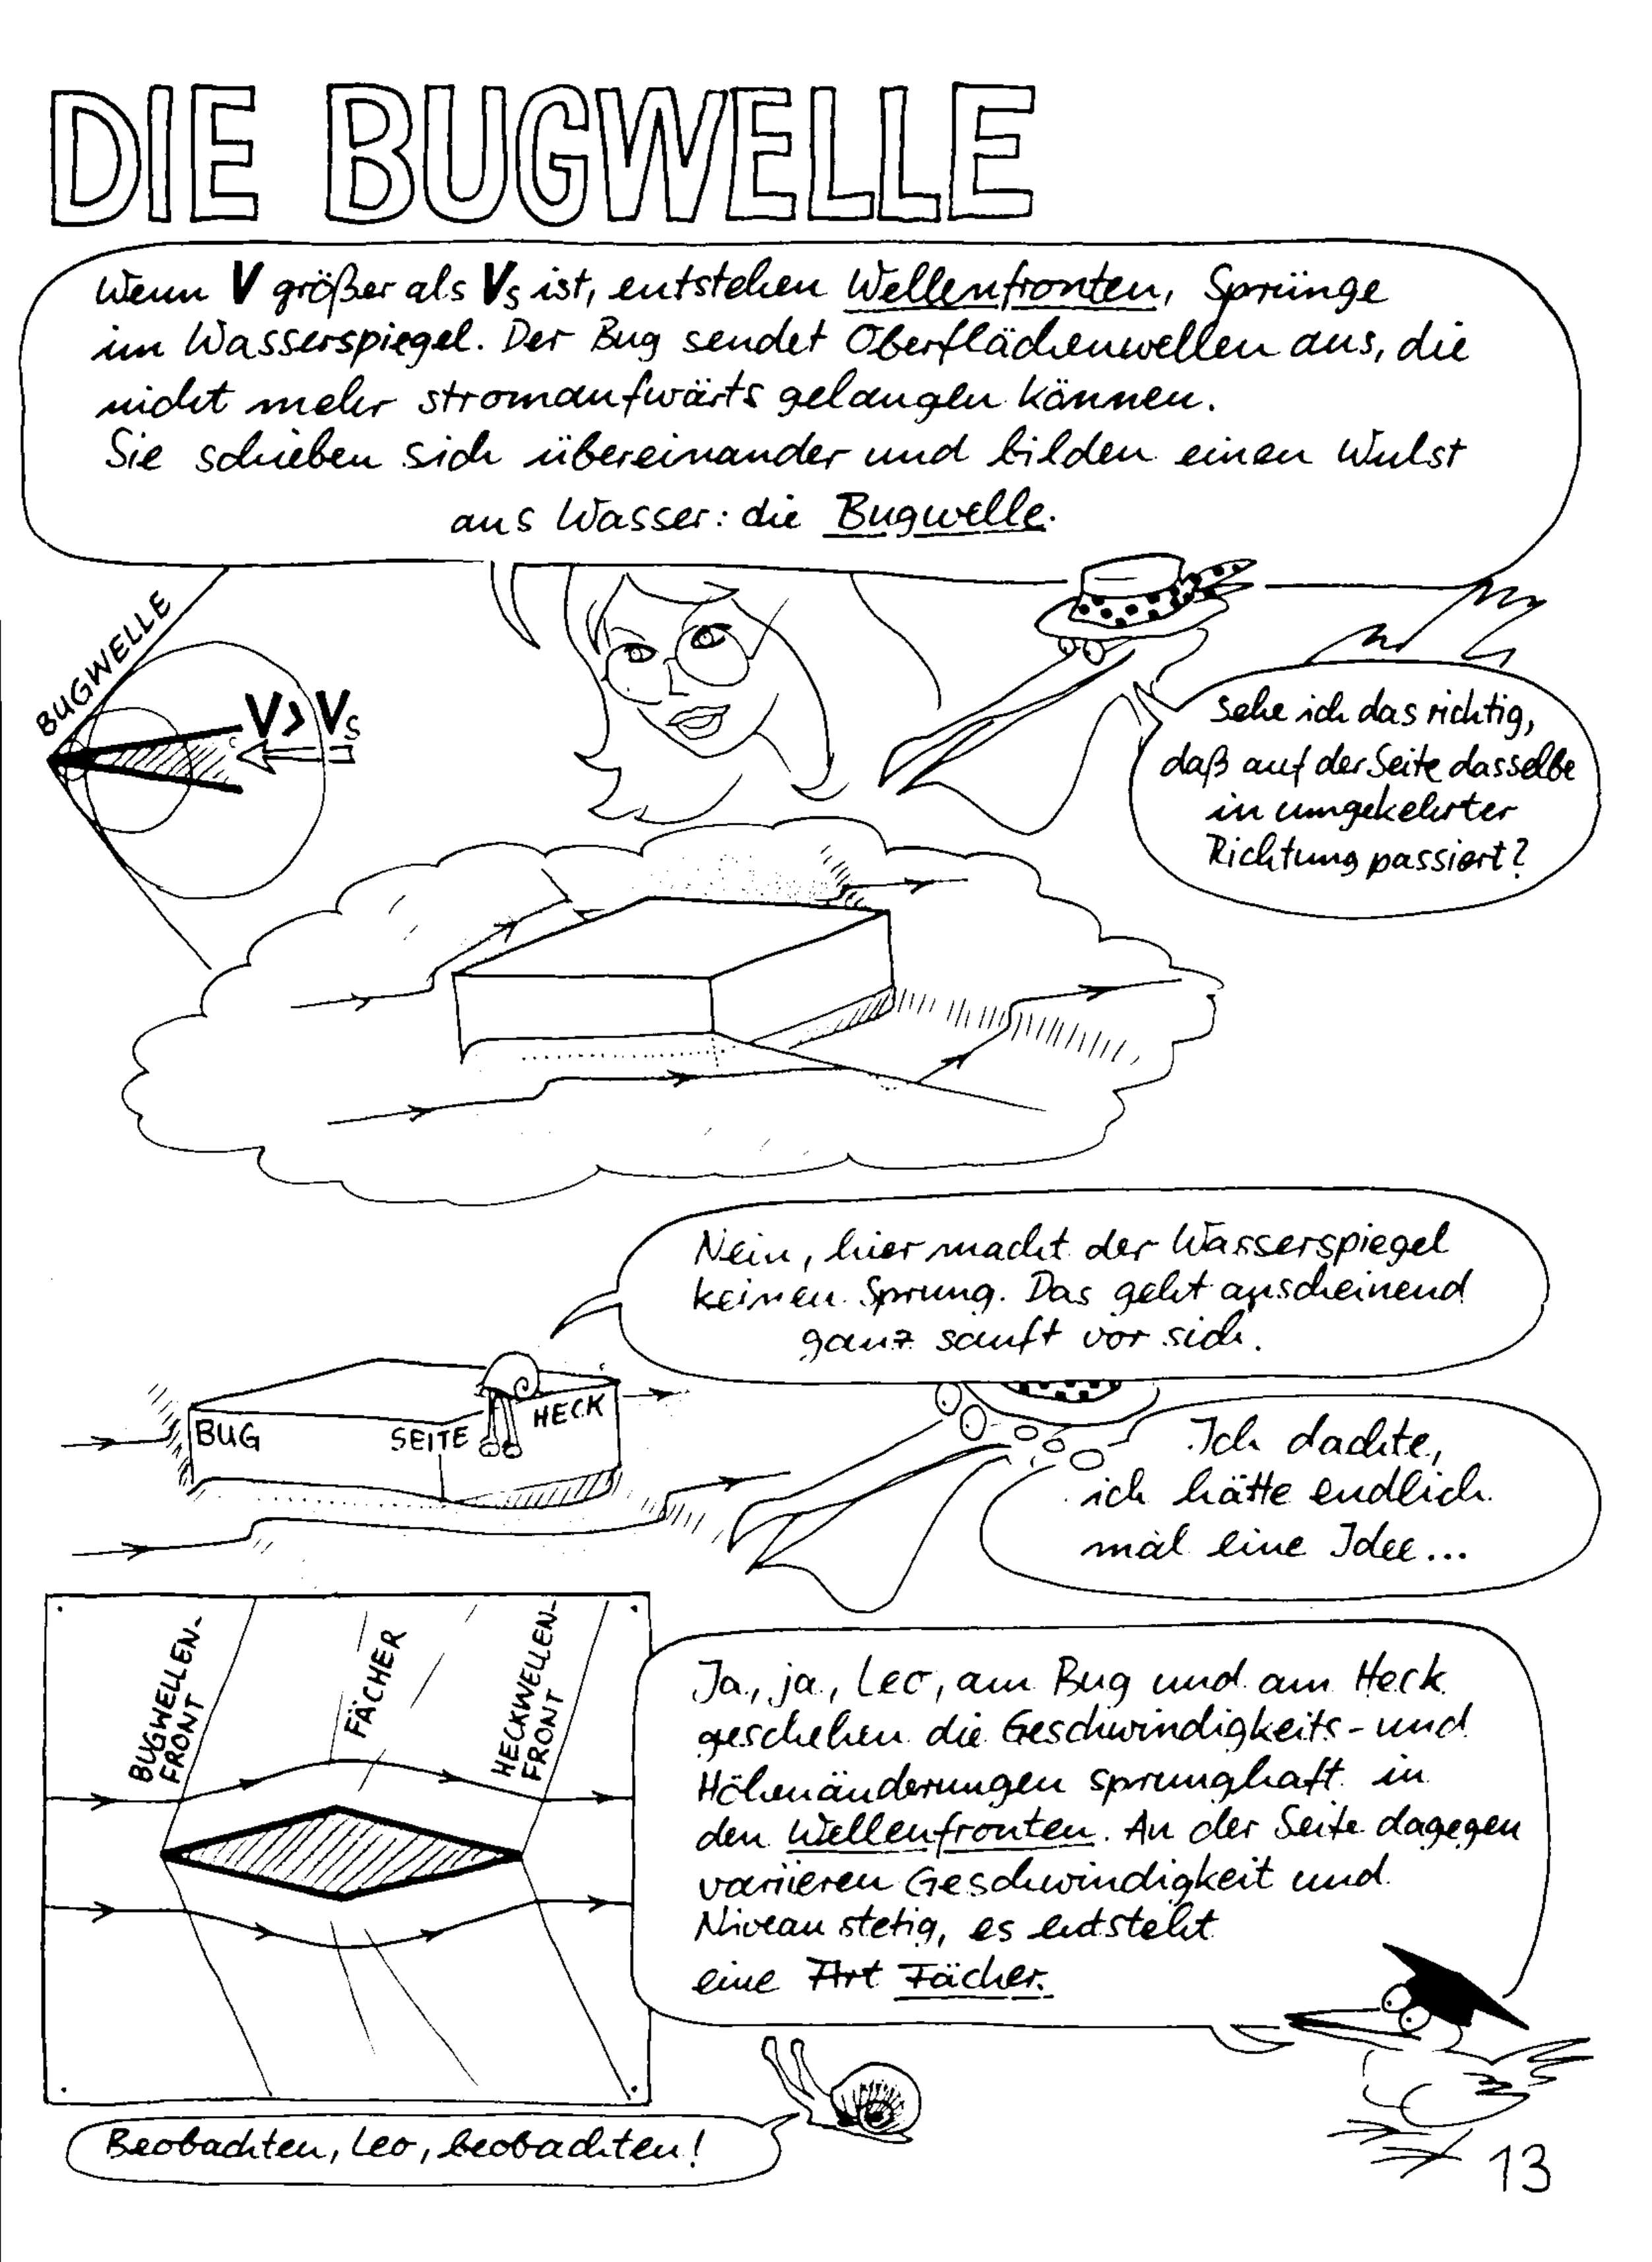 DIE BUGWELLE
Wenn V größer als Vs ist, entstehen Wellenfronten, Sprünge
im Wasserspiegel. Der Bug sendet Oberflächenwellen aus, die
nicht mehr stromaufwärts gelangen können.
Sie schieben sich übereinander und bilden einen Wulst
aus Wasser: die Bugwelle.
BUGWELLE
V > Vs
Sehe ich das richtig,
daß auf der Seite dasselbe
in umgekehrter
Richtung passiert?
Nein, hier macht der Wasserspiegel
keinen Sprung. Das geht anscheinend
ganz sanft vor sich.
BUG
SEITE
HECK
Ich dachte,
ich hätte endlich
mal eine Idee...
BUGWELLEN-
FRONT
FÄCHER
HECKWELLEN-
FRONT
Ja, ja, Leo, am Bug und am Heck
geschehen die Geschwindigkeits- und
Höhenänderungen sprunghaft in
den Wellenfronten. An der Seite dagegen
variieren Geschwindigkeit und
Niveau stetig, es entsteht
eine Art Fächer.
Beobachten, Leo, beobachten!
13